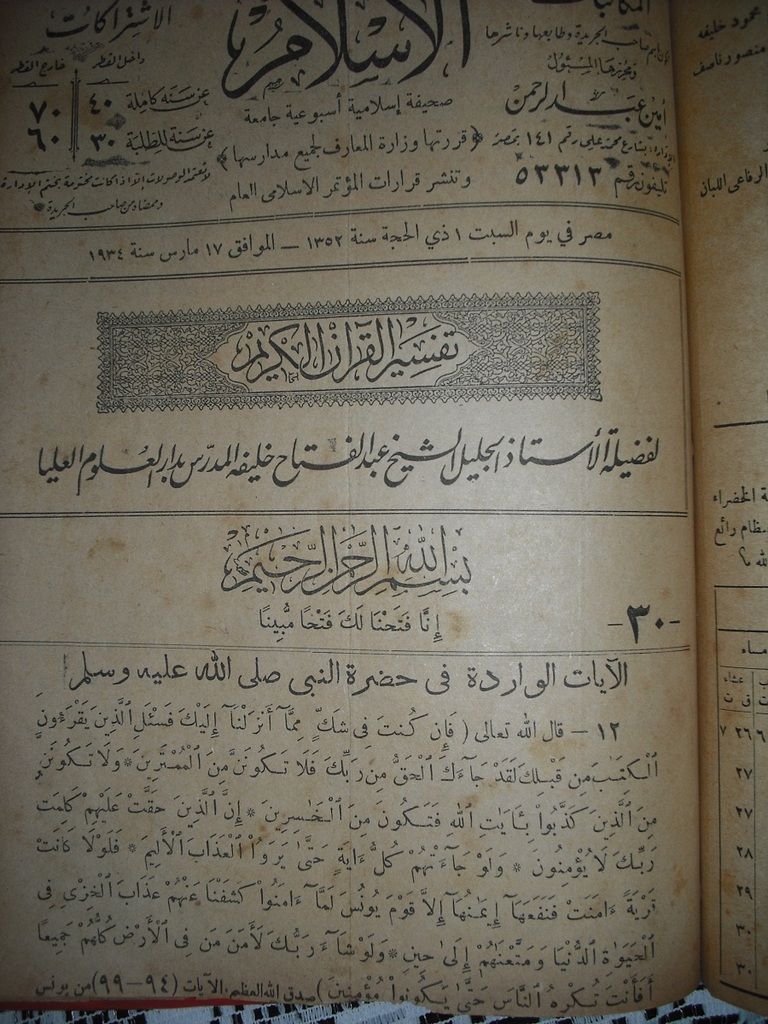 الاشتراكات
داخل القطر
خارج القطر
عن سنة كاملة ٤٠ ٧٠
عن سنة للطلبة ٣٠ ٦٠
لا تعتمد الوصولات إلا إذا كانت مختومة بختم الإدارة
وممضاة من صاحب الجريدة
الاسلام
صحيفة إسلامية أسبوعية جامعة
﴿ قررتها وزارة المعارف لجميع مدارسها ﴾
وتنشر قرارات المؤتمر الاسلامى العام
المكاتبات
صاحب الجريدة وطابعها وناشرها
ومحررها المسئول
أمين عبد الرحمن
بشارع محمد على رقم ١٤١ بمصر
تليفون رقم ٥٣٣١٣
مصر في يوم السبت ١ ذي الحجة سنة ١٣٥٢ — الموافق ١٧ مارس سنة ١٩٣٤
تفسير القرآن الكريم
لفضيلة الأستاذ الجليل الشيخ عبد الفتاح خليفه المدرس بدار العلوم العليا
بسم الله الرحمن الرحيم
إِنَّا فَتَحْنَا لَكَ فَتْحًا مُّبِينًا
-٣٠-
الآيات الواردة فى حضرة النبى صلى الله عليه وسلم
١٢ — قال الله تعالى ( فَإِن كُنتَ فِى شَكٍّ مِّمَّآ أَنزَلْنَآ إِلَيْكَ فَسْئَلِ الَّذِينَ يَقْرَءُونَ
الْكِتَٰبَ مِن قَبْلِكَ لَقَدْ جَآءَكَ الْحَقُّ مِن رَّبِّكَ فَلَا تَكُونَنَّ مِنَ الْمُمْتَرِينَ * وَلَا تَكُونَنَّ
مِنَ الَّذِينَ كَذَّبُوا۟ بِـَٔايَٰتِ اللَّهِ فَتَكُونَ مِنَ الْخَٰسِرِينَ * إِنَّ الَّذِينَ حَقَّتْ عَلَيْهِمْ كَلِمَتُ
رَبِّكَ لَا يُؤْمِنُونَ * وَلَوْ جَآءَتْهُمْ كُلُّ ءَايَةٍ حَتَّىٰ يَرَوُا۟ الْعَذَابَ الْأَلِيمَ * فَلَوْلَا كَانَتْ
قَرْيَةٌ ءَامَنَتْ فَنَفَعَهَآ إِيمَٰنُهَآ إِلَّا قَوْمَ يُونُسَ لَمَّآ ءَامَنُوا۟ كَشَفْنَا عَنْهُمْ عَذَابَ الْخِزْىِ فِى
الْحَيَوٰةِ الدُّنْيَا وَمَتَّعْنَٰهُمْ إِلَىٰ حِينٍ * وَلَوْ شَآءَ رَبُّكَ لَآمَنَ مَن فِى الْأَرْضِ كُلُّهُمْ جَمِيعًا
أَفَأَنتَ تُكْرِهُ النَّاسَ حَتَّىٰ يَكُونُوا۟ مُؤْمِنِينَ ) صدق الله العظيم . الآيات (٩٤—٩٩) من يونس
محمود خليفه
منصور ناصف
الرفاعى اللبان
الخضراء
رائع
عشاء
ق ت
٢٦ ٧
٢٧
٢٧
٢٨
٢٩
٣٠
٣٠